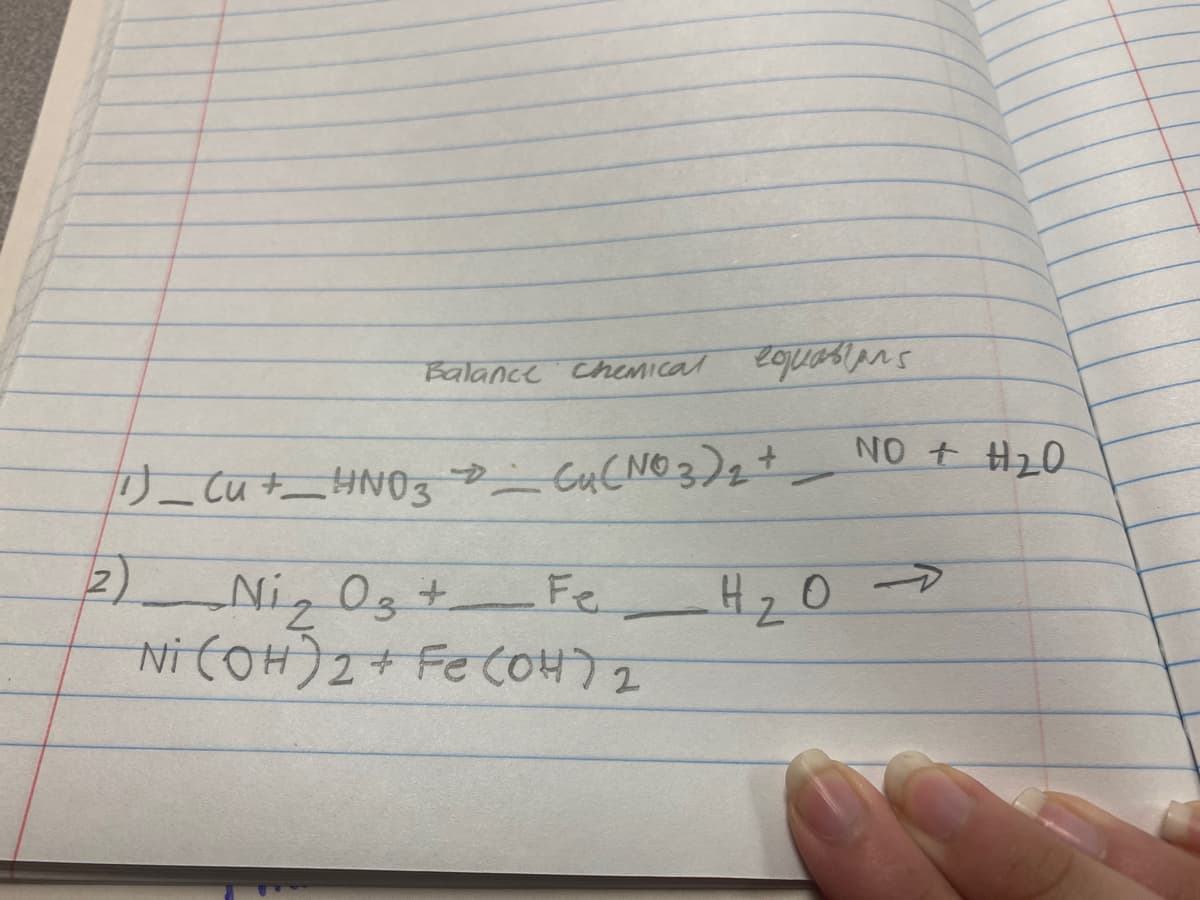 Balance chemical equations
1) _ Cu + _ HNO3 → _ Cu(NO3)2 + _ NO + H2O
2) __ Ni2 O3 + __ Fe __ H2O →
Ni(OH)2 + Fe(OH)2